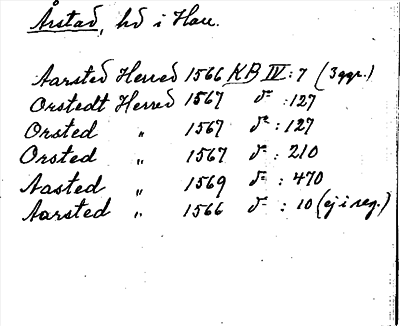 Årstad, hd i Hall.
Aarsted Herred 1566 KB IV : 7 (3ggr.)
Orstedt Herred 1567 d:o : 127
Orsted " 1567 d:o : 127
Orsted " 1567 d:o : 210
Aasted " 1569 d:o : 470
Aarsted " 1566 d:o : 10 (ej i reg.)